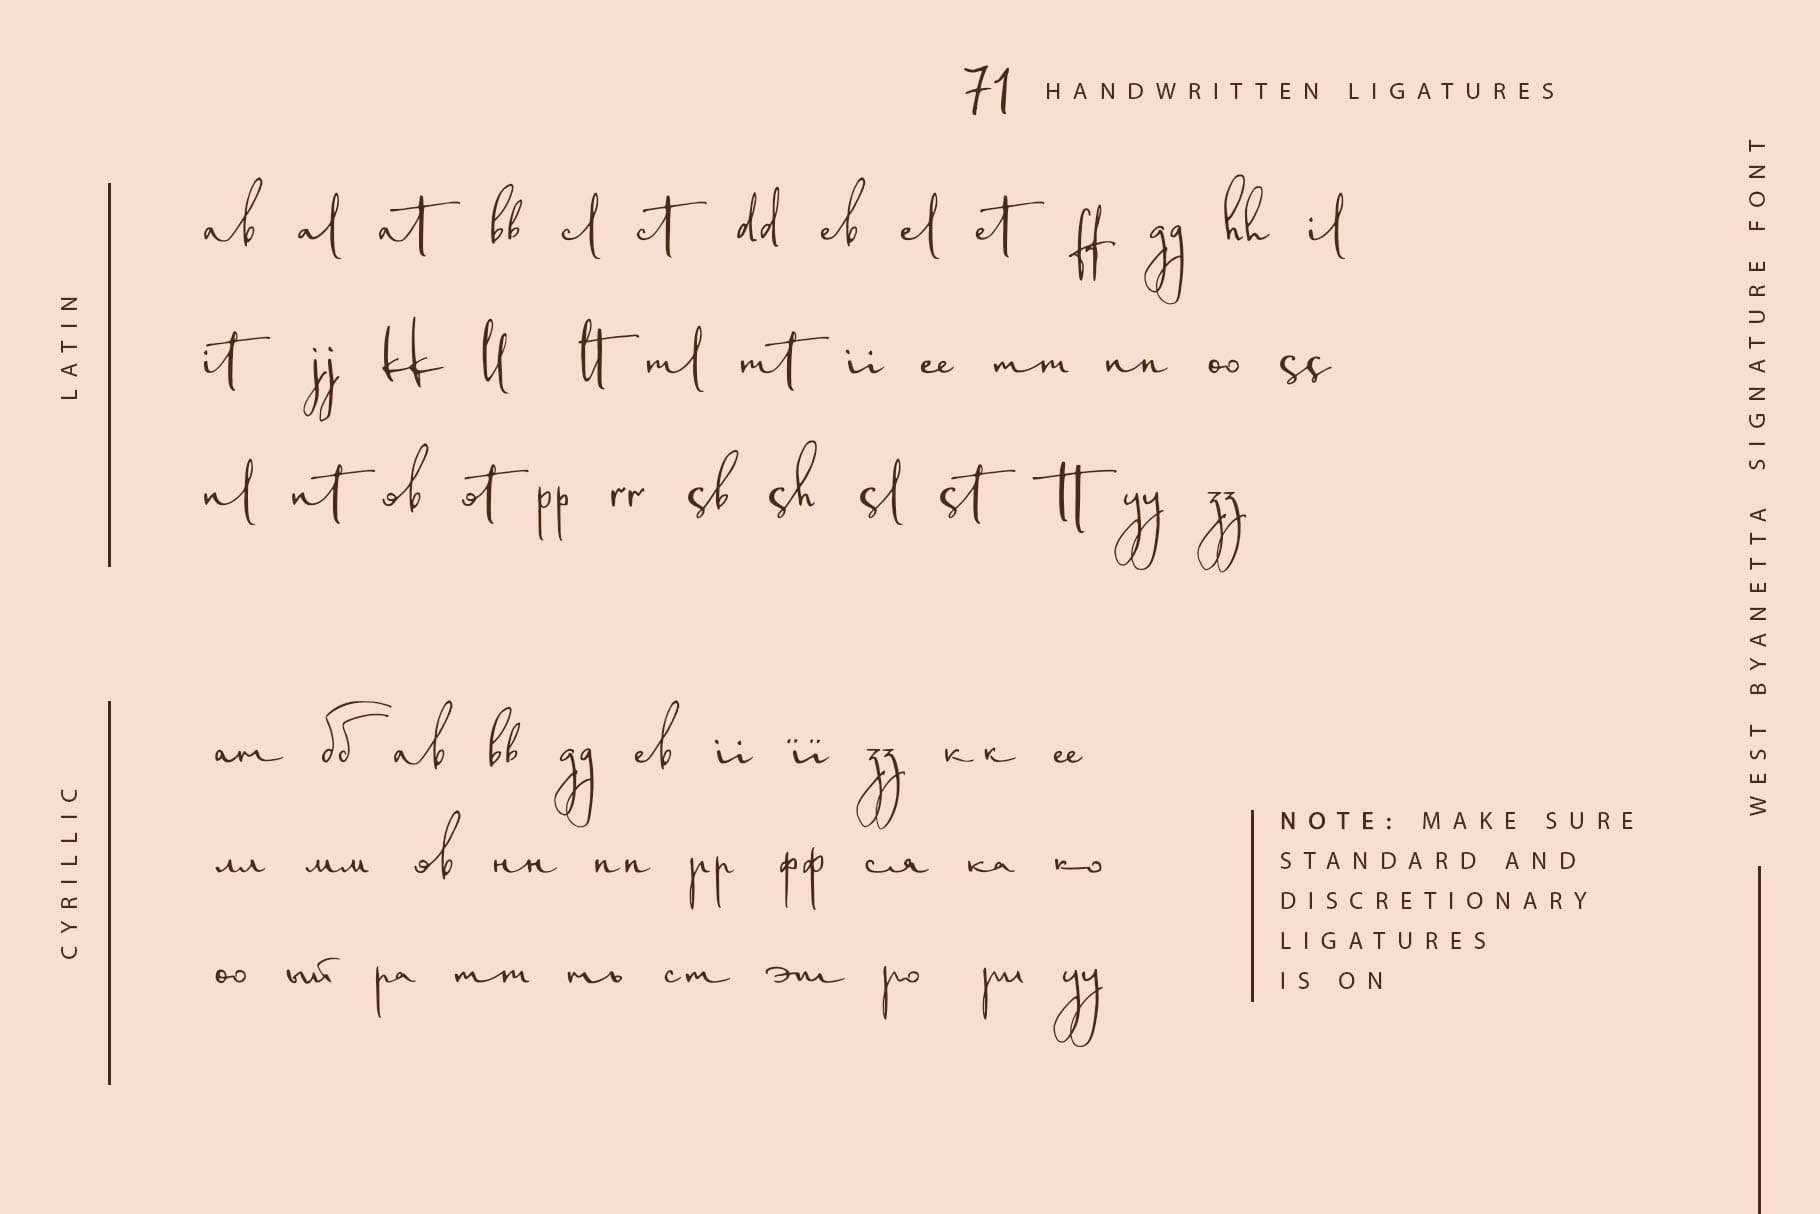 71 HANDWRITTEN LIGATURES
LATIN
ab al at bb cl ct dd eb el et ff gg hh il
it jj kk ll lt ml mt ii ee mm nn oo ss
nl nt ob ot pp rr sb sh sl st tt yy zz
CYRILLIC
ат бб ав вв дд ев іі її зз кк ее
лл мм ов нн пп рр фф ся ка ко
оо ый ра тт ть ст эт ро ри уу
NOTE: MAKE SURE
STANDARD AND
DISCRETIONARY
LIGATURES
IS ON
WEST BYANETTA SIGNATURE FONT